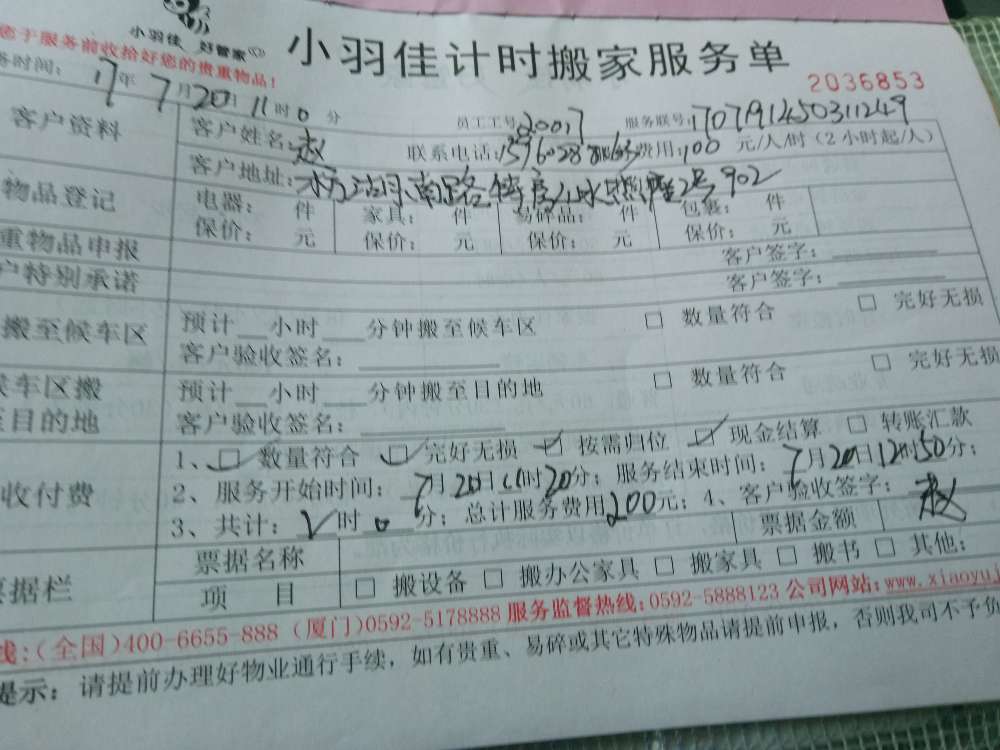 小羽佳 好管家
小羽佳计时搬家服务单
您于服务前收拾好您的贵重物品!
2036853
务时间: 17年 7月20日 11时0分
员工工号: 20017 服务联号: 170719145031 1249
客户资料
客户姓名: 赵 联系电话: 费用: 100 元/人/时 (2小时起/人)
客户地址: 湖南路 2号902
物品登记
电器: 件 家具: 件 易碎品: 件 包裹: 件
保价: 元 保价: 元 保价: 元 保价: 元
重物品申报 客户签字:
户特别承诺 客户签字:
搬至候车区
预计 小时 分钟搬至候车区 □ 数量符合 □ 完好无损
客户验收签名:
候车区搬
至目的地
预计 小时 分钟搬至目的地 □ 数量符合 □ 完好无损
客户验收签名:
收付费
1、☑ 数量符合 ☑ 完好无损 ☑ 按需归位 ☑ 现金结算 □ 转账汇款
2、服务开始时间: 7月20日11时20分; 服务结束时间: 7月20日12时50分;
3、共计: 2时0分; 总计服务费用200元; 4、客户验收签字: 赵
票据栏
票据名称 票据金额
项 目 □ 搬设备 □ 搬办公家具 □ 搬家具 □ 搬书 □ 其他:
线:(全国)400-6655-888 (厦门)0592-5178888 服务监督热线:0592-5888123 公司网站:www.xiaoyuj
提示: 请提前办理好物业通行手续, 如有贵重、易碎或其它特殊物品请提前申报, 否则我司不予负